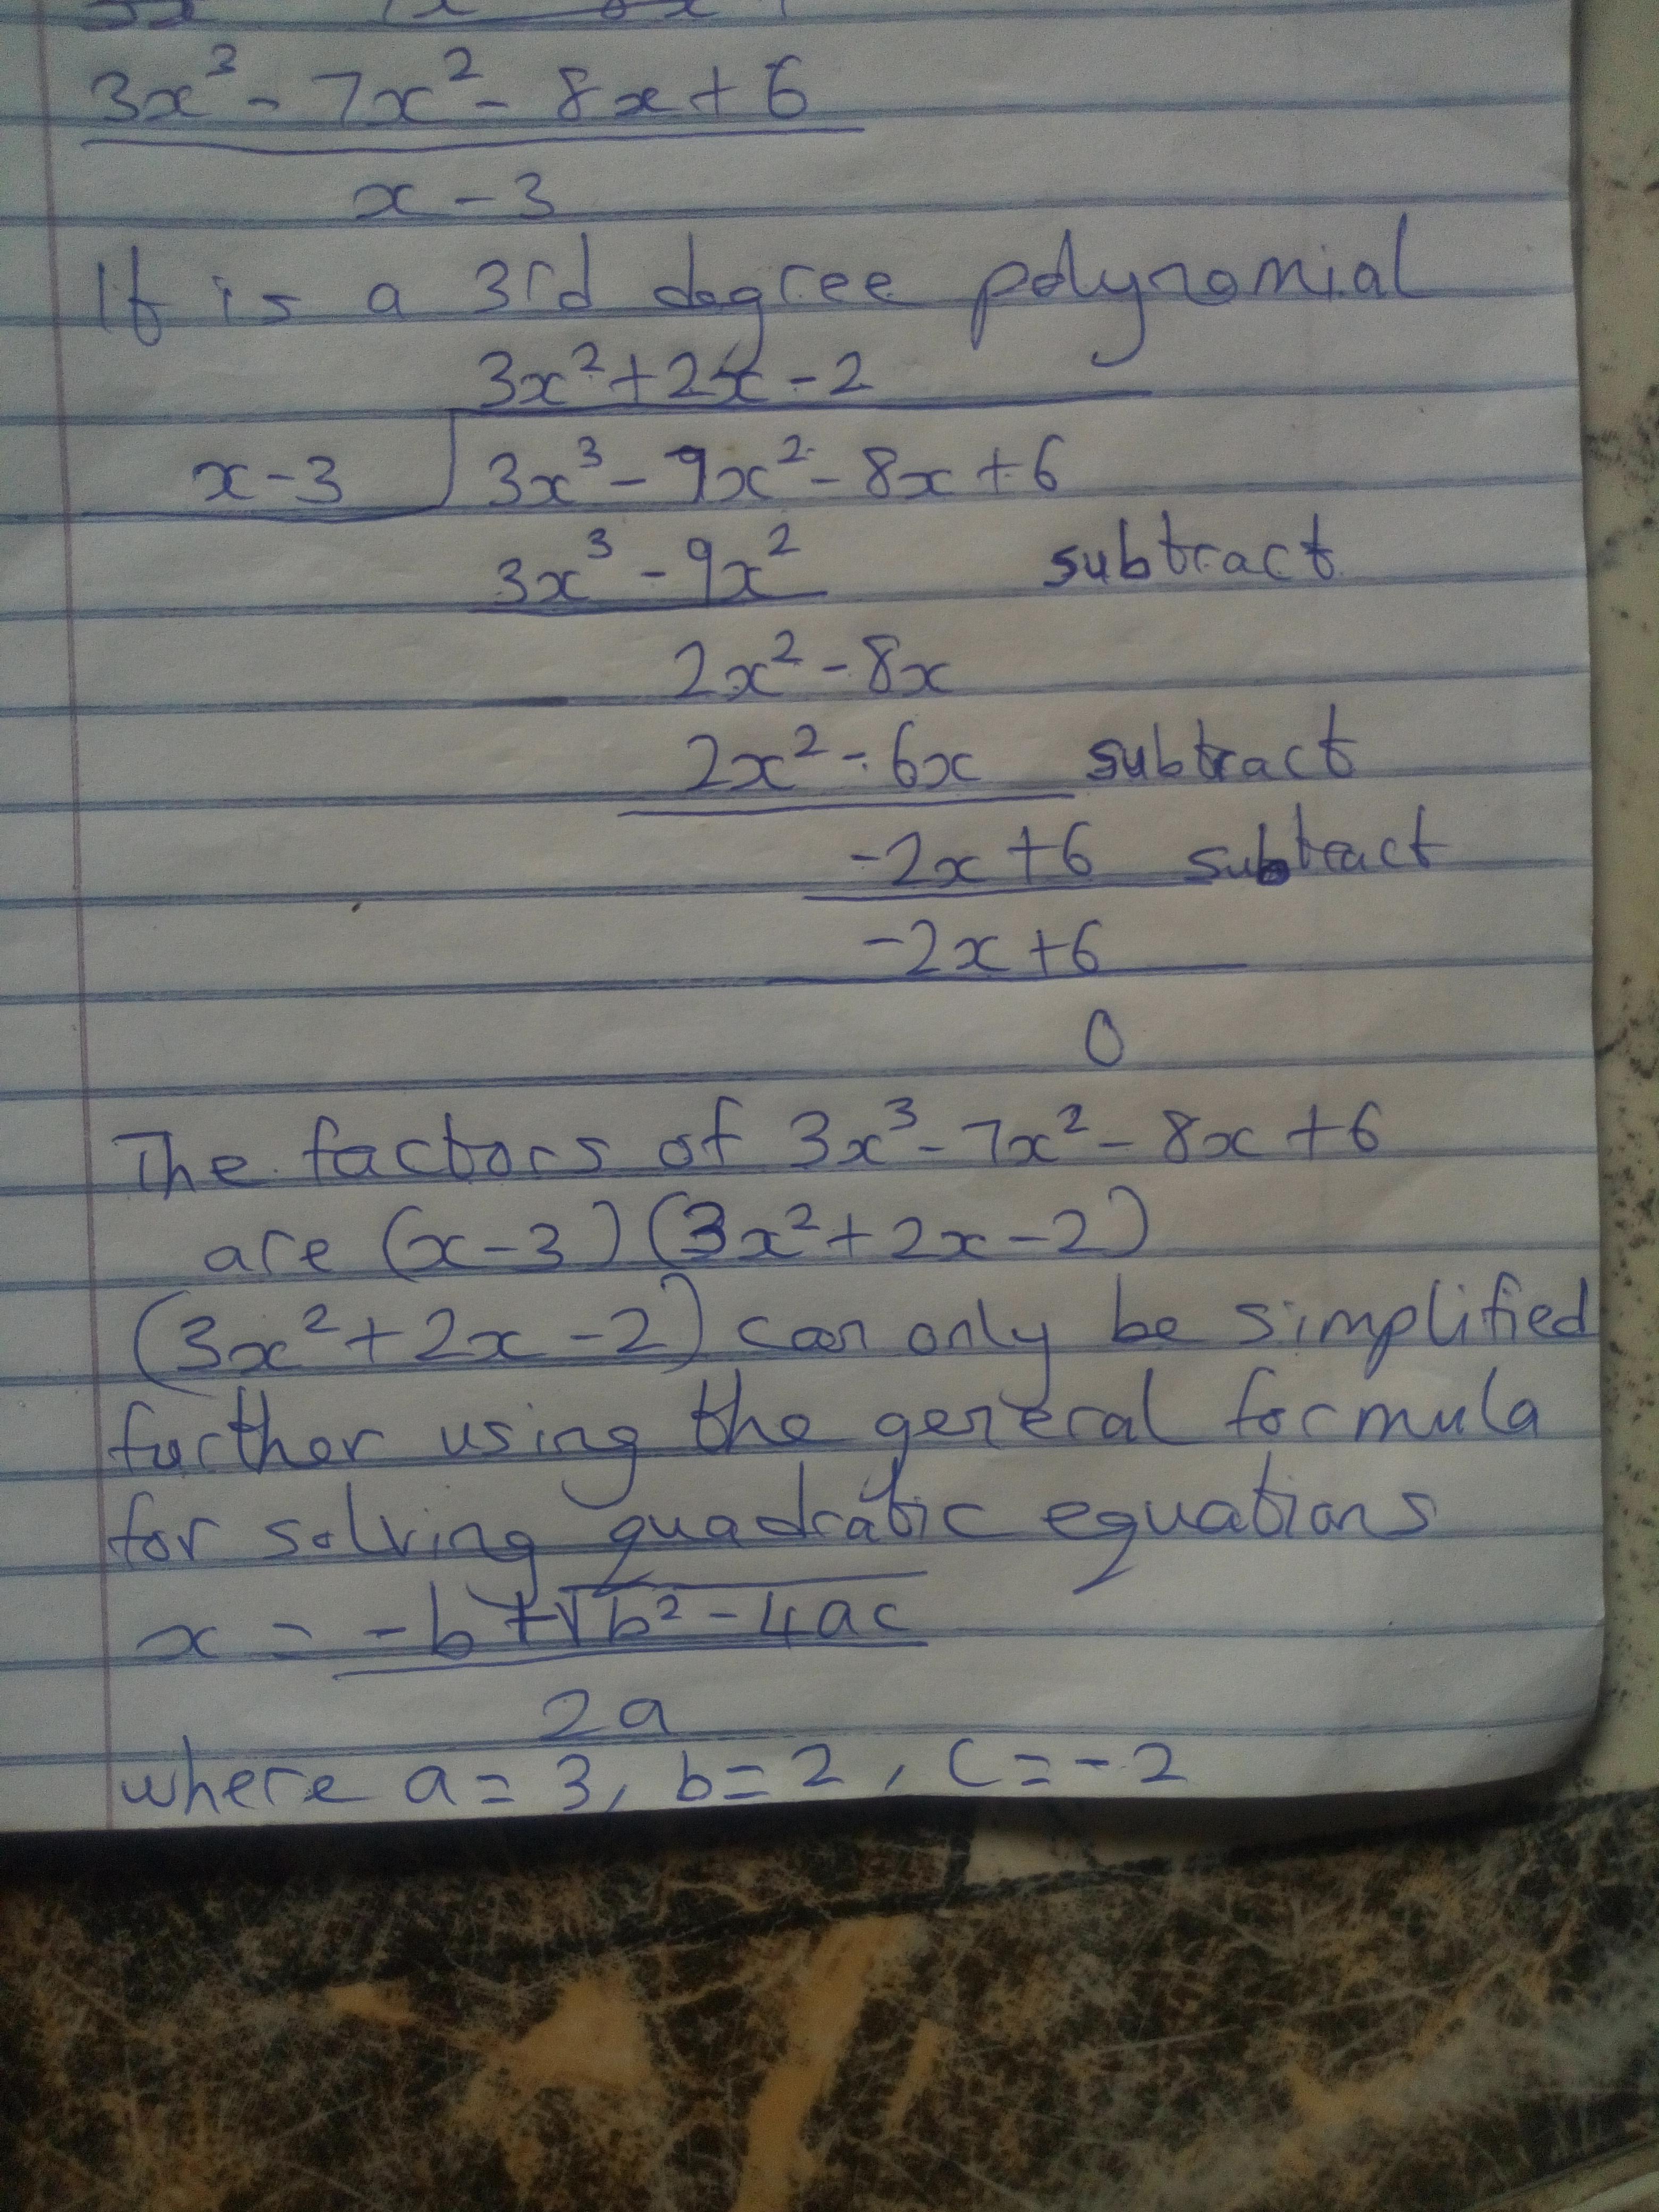 3x³ - 7x² - 8x + 6
x - 3
If is a 3rd degree polynomial
3x² + 2x - 2
x - 3 3x³ - 9x² - 8x + 6
3x³ - 9x² subtract
2x² - 8x
2x² - 6x subtract
-2x + 6 subtract
-2x + 6
0
The factors of 3x³ - 7x² - 8x + 6
are (x - 3) (3x² + 2x - 2)
(3x² + 2x - 2) can only be simplified
further using the general formula
for solving quadratic equations
x = -b + √b² - 4ac
2a
where a = 3, b = 2, c = -2